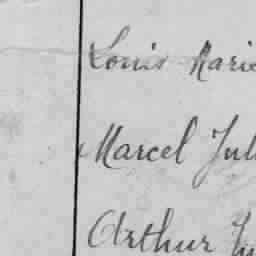 Louis Marie
Marcel Jul
Arthur Ju